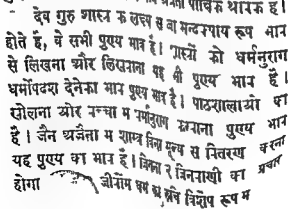 देव गुरु शास्त्र के लक्ष्य से वा मन्दकषाय रूप भाव
होते हैं, वे सभी पुण्य भाव हैं। शास्त्रों को धर्मानुराग
से लिखना और लिखवाना यह भी पुण्य भाव है।
धर्मोपदेश देनेका भाव पुण्य भाव है। पाठशालाओं का
खोलना और बच्चों में धर्मानुराग कराना पुण्य भाव
है। जैन अजैनों में शास्त्र बिना मूल्य से वितरण करना
यह पुण्य का भाव है। जिनवाणी का प्रचार
होगा जीवोंमें धर्म की रुचि विशेष रूप में